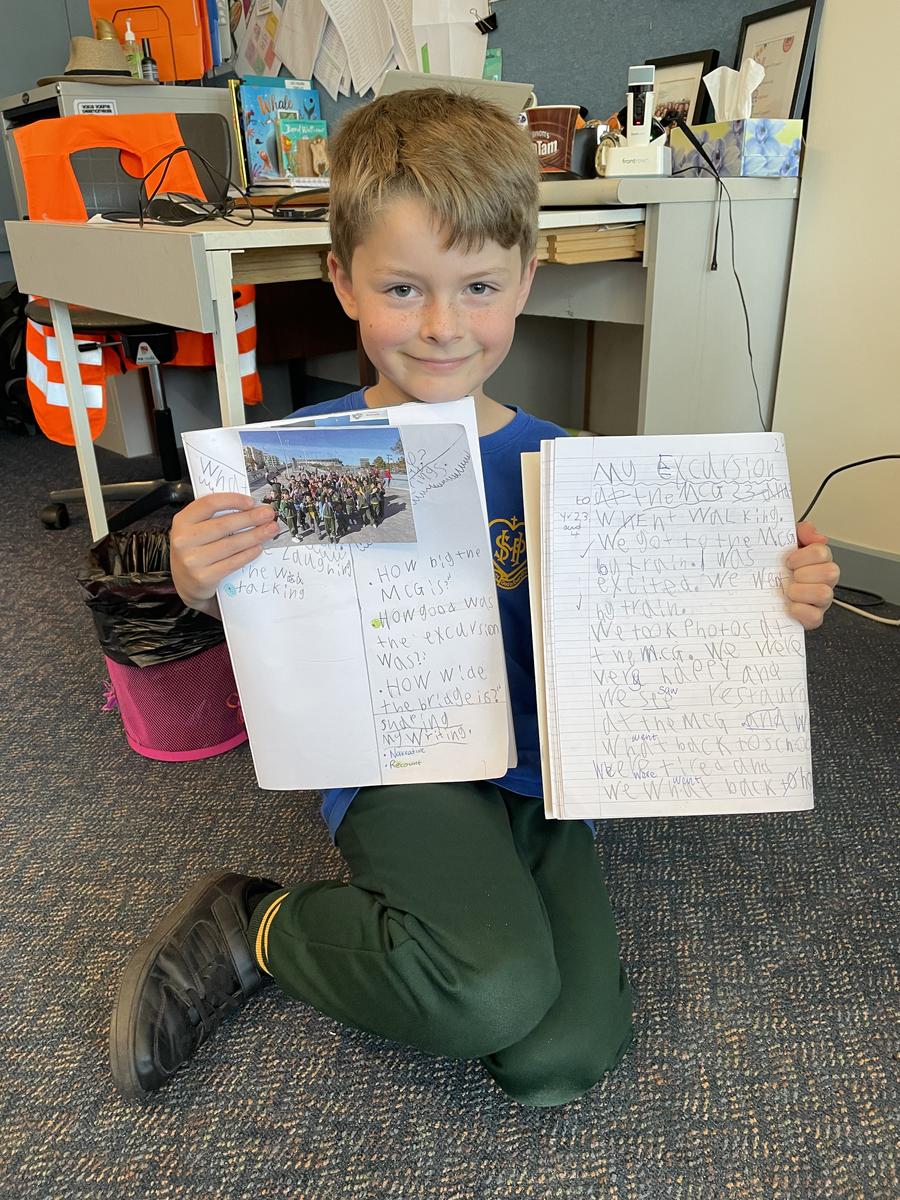 Whale
David Walliams
Tam
frontrow
My Excursion
to at the MCG 23
Y 23 and 4
WHENT WALKING.
We got to the MCG
by train. I was
excited. We wen
by train.
We took Photos at
the M.C.G. We were
very happy and
we saw restaura
at the MCG and w
went
what back to schoo
We're were tired and
went
we what back to h
What
the walk
talking
• HOW big the
MCG is?
• HOW good was
the excursion
was?
• HOW wide
the bridge is?
shaeing
My Writing.
• Narrative
• Recount